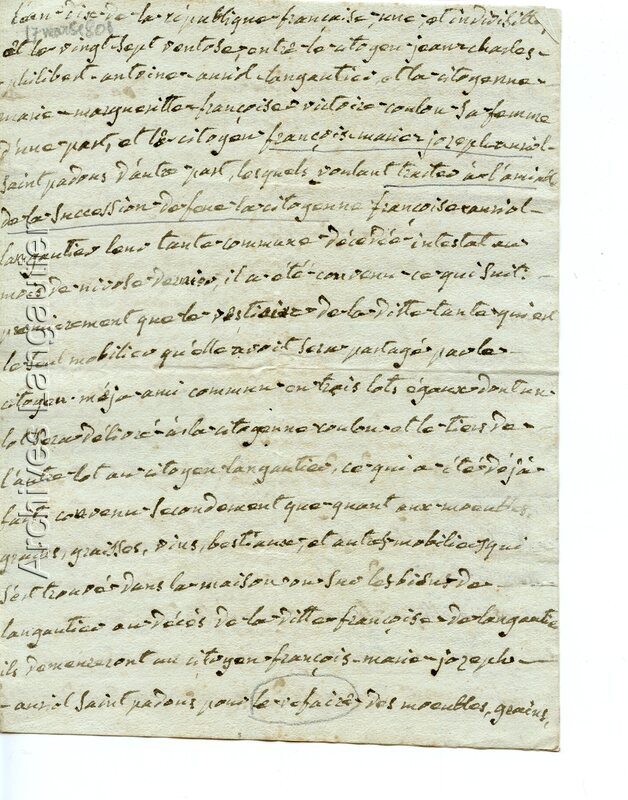 l'an dix de la république francaise, une et indivisible,
17 mars 1801
et le vingt sept ventose, entre le citoyen jean-charles-
philibert-antoine-auriol-langautier et la citoyenne
marie-margueritte-françoise victoire coulon sa femme
d'une part, et le citoyen françois-marie-jozeph-auriol-
saint padons d'autre part, lesquels voulant traiter à l'amiable
de la succession de feue la citoyenne françoise auriol-
langautier leur tante commune décédée intestat au
mois de nivose dernier, il a été convenu ce qui suit.
premièrement que le vestiaire de la ditte tante qui est
le seul mobilier qu'elle avoit sera partagé par le
citoyen ami commun en trois lots égaux dont un
lot sera délivré à la citoyenne coulon et le tiers de
l'autre lot au citoyen langautier, ce qui a été déjà
fait convenu secondement que quant aux moeubles,
grains, graisses, vins, bestiaux, et autres mobiliers qui
s'est trouvé dans la maison ou sur les biens de
langautier au décès de la ditte françoise de langautier
ils demeureront au citoyen françois-marie-jozeph-
-auriol saint padons pour le refaire des moeubles, grains,
Archives Langautier